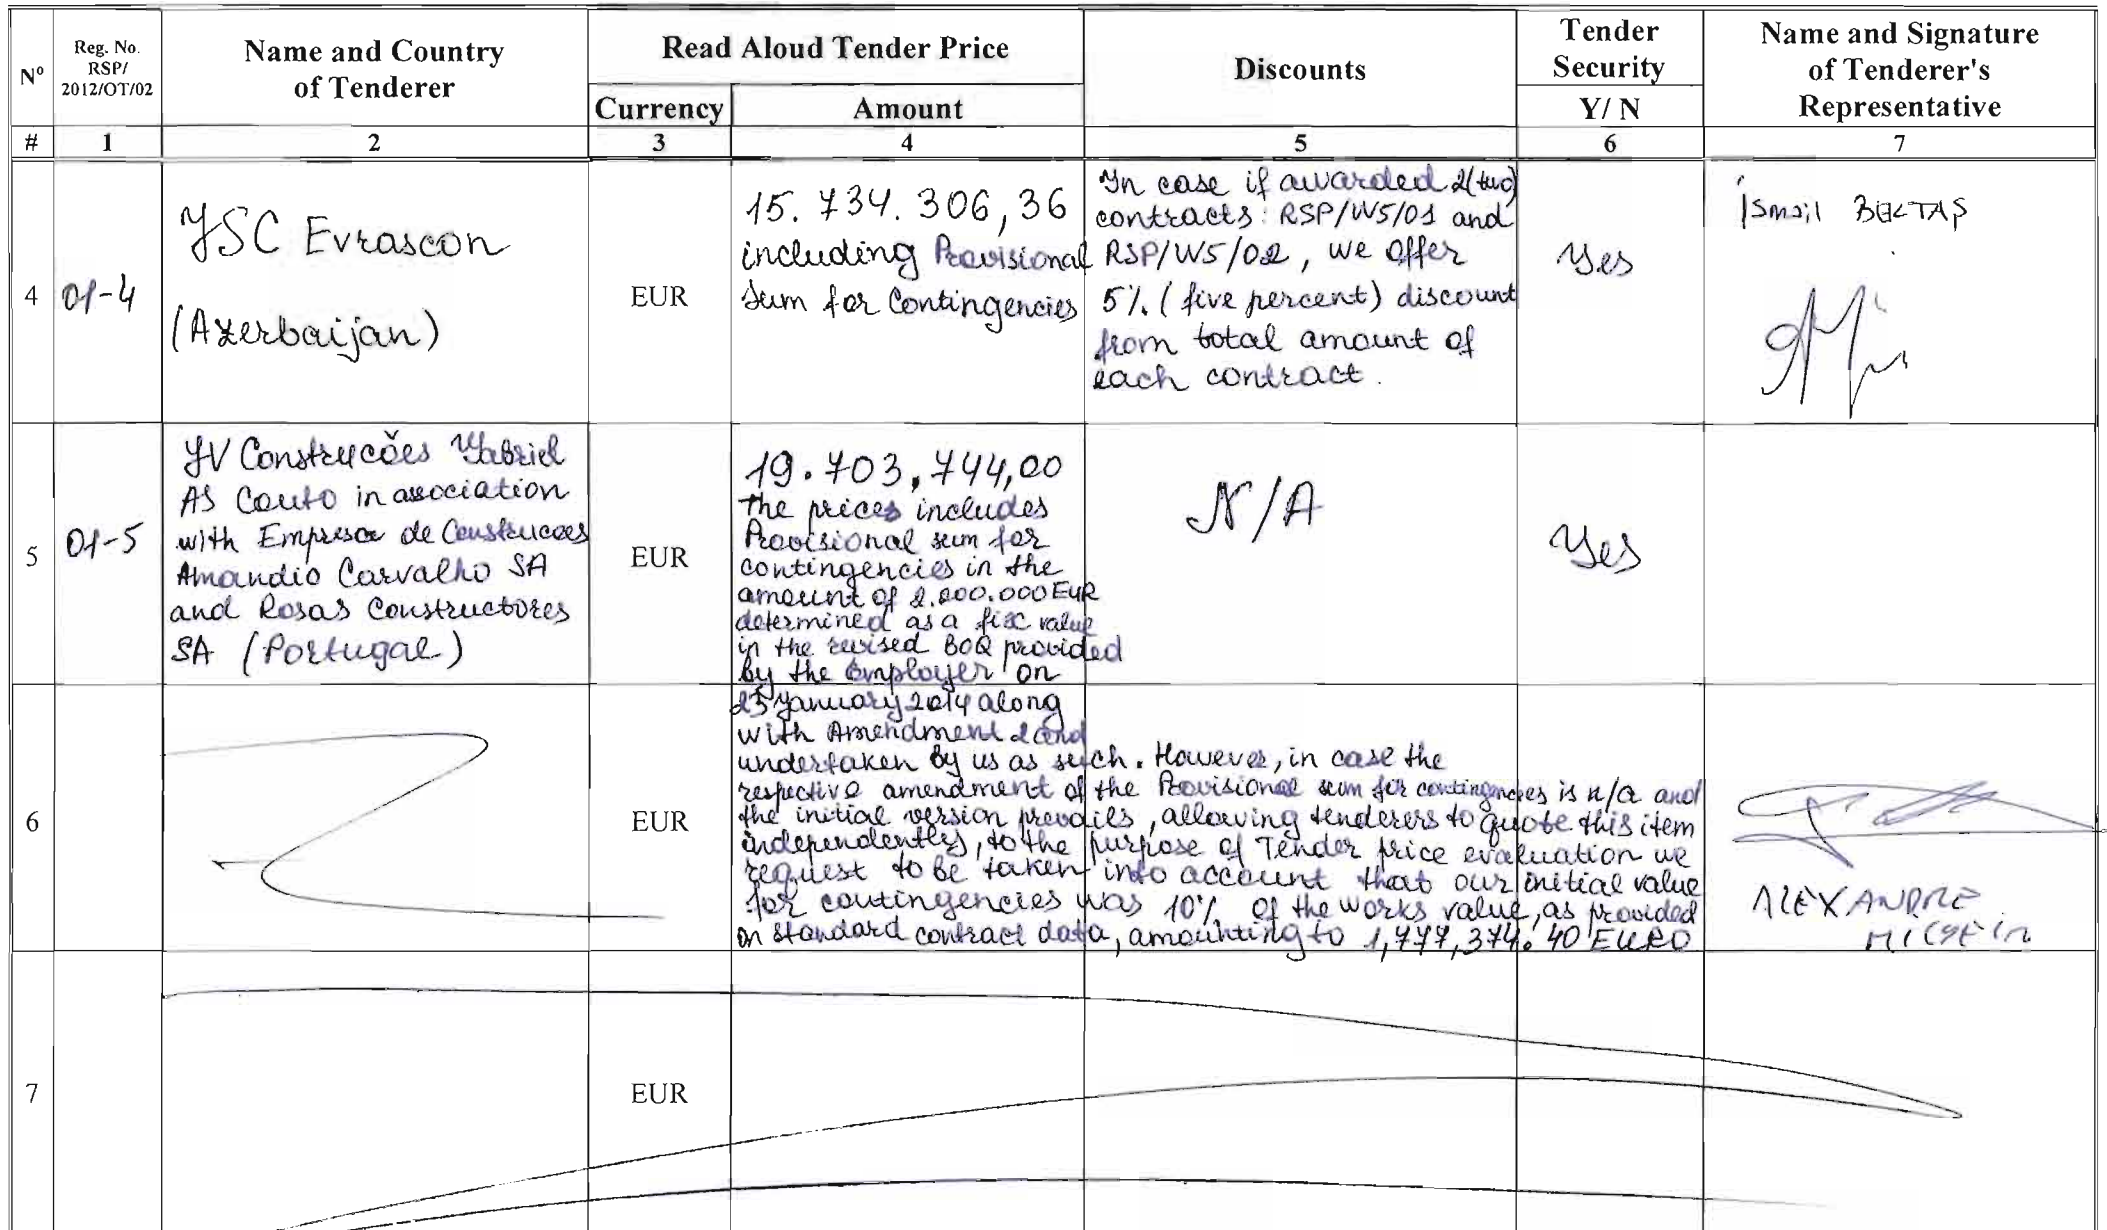 Nº
Reg. No.
RSP/
2012/OT/02
Name and Country
of Tenderer
Read Aloud Tender Price
Currency
Amount
Discounts
Tender
Security
Y/ N
Name and Signature
of Tenderer's
Representative
# 1 2 3 4 5 6 7
4
01-4
JSC Evrascon
(Azerbaijan)
EUR
15.734.306,36
including Provisional
Sum for Contingencies
In case if awarded 2(two)
contracts: RSP/W5/01 and
RSP/W5/02, we offer
5% (five percent) discount
from total amount of
each contract.
Yes
İsmail BEKTAŞ
5
01-5
JV Construcões Gabriel
AS Couto in association
with Empresa de Construcoes
Amandio Carvalho SA
and Rosas Constructores
SA (Portugal)
EUR
19.703,744,00
the prices includes
Provisional sum for
contingencies in the
amount of 2.200.000 EUR
determined as a fix value
in the revised BOQ provided
by the Employer on
N/A
Yes
6
EUR
23 January 2014 along
with Amendment 2 and
undertaken by us as such. However, in case the
respective amendment of the Provisional sum for contingencies is n/a and
the initial version prevails, allowing tenderers to quote this item
independently, to the purpose of Tender price evaluation we
request to be taken into account that our initial value
for contingencies was 10% of the works value, as provided
on standard contract data, amounting to 1,777,374.40 EURO
ALEXANDRE
7
EUR